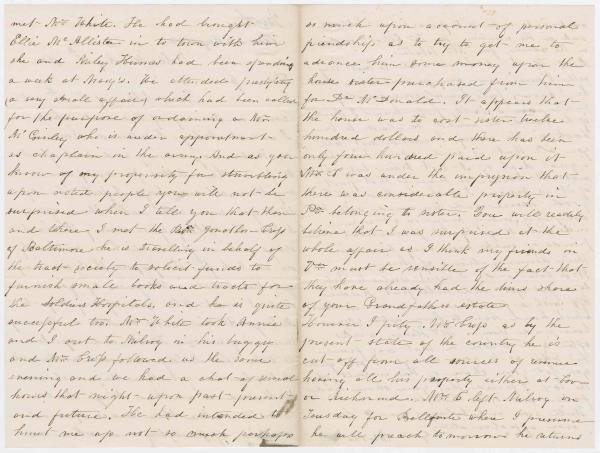 met Mr White. He had brought
Ellie McAllister in to town with him
she and Haley Himes had been spending
a week at Mary's. We attended presbytery
a very small affair, which had been called
for the purpose of ordaining a Mr.
McGinley who is under appointment
as chaplain in the army. And as you
know of my propensity for stumbling
upon noted people you will not be
surprised when I tell you that then
and there I met the Rev. Jonathan Cross
of Baltimore he is travelling in behalf of
the tract society to solicit funds to
furnish small books and tracts for
the Soldiers Hospitals, and he is quite
successful too. Mr White took Annie
and I out to Milroy in his buggy
and Mr Cross followed us the same
evening and we had a chat of several
hours that night upon past present
and future. He had intended to
hunt me up not so much perhaps
so much upon account of personal
friendship as to try to get me to
advance him some money upon the
house sister purchased from him
for Dr McDonald. It appears that
the house was to cost sister twelve
hundred dollars and there has been
only four hundred paid upon it
Mr C was under the impression that
there was considerable property in
Pa belonging to sister. You will readily
believe that I was surprised at the
whole affair as I think my friends in
Va must be sensible of the fact that
they have already had the lions share
of your Grandfathers estate
However I pity Mr Cross as by the
present state of the country he is
cut off from all sources of revenue
having all his property either at
or Richmond. Mr C left Milroy on
Tuesday for Bellfonte where I presume
he will preach tomorrow he returns